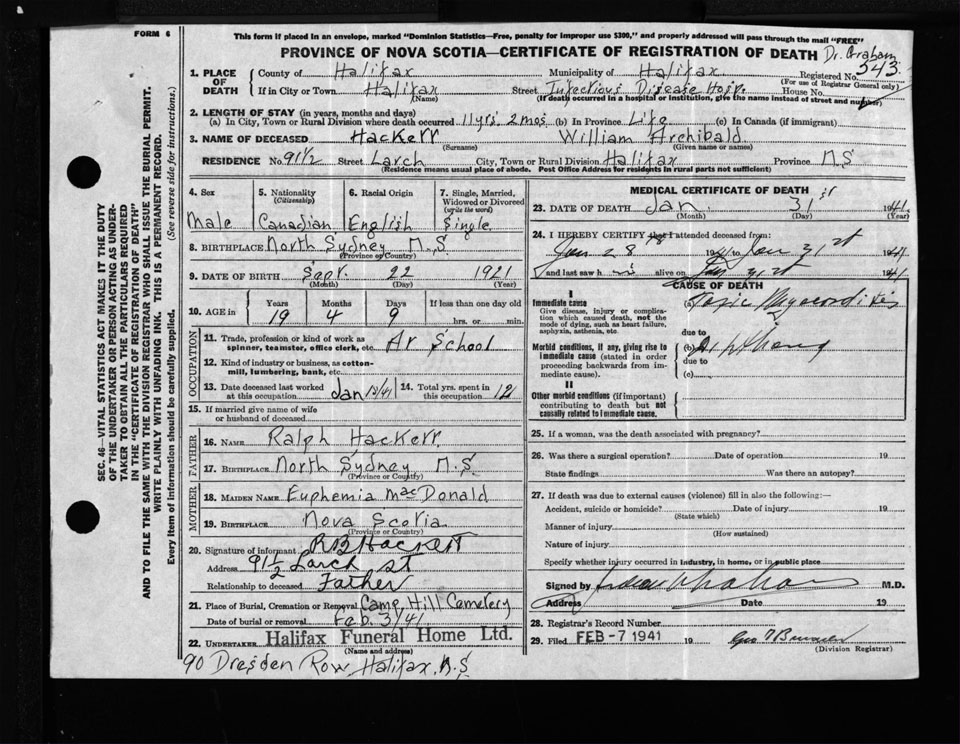 FORM 6
This form if placed in an envelope, marked "Dominion Statistics—Free, penalty for improper use $300," and properly addressed will pass through the mail "FREE"
PROVINCE OF NOVA SCOTIA—CERTIFICATE OF REGISTRATION OF DEATH Dr. Graham
1. PLACE OF DEATH County of Halifax Municipality of Halifax Registered No. 543
(For use of Registrar General only)
If in City or Town Halifax Street Infectious Disease Hosp. House No.
(Name) (If death occurred in a hospital or institution, give the name instead of street and number)
2. LENGTH OF STAY (in years, months and days)
(a) In City, Town or Rural Division where death occurred 11 yrs. 2 mos (b) In Province Life (c) In Canada (if immigrant)
3. NAME OF DECEASED Hackett William Archibald
(Surname) (Given name or names)
RESIDENCE No. 91 1/2 Street Larch City, Town or Rural Division Halifax Province N.S
(Residence means usual place of abode. Post Office Address for residents in rural parts not sufficient)
4. Sex Male
5. Nationality (Citizenship) Canadian
6. Racial Origin English
7. Single, Married, Widowed or Divorced (write the word) Single
8. BIRTHPLACE North Sydney N.S.
(Province or Country)
9. DATE OF BIRTH Sept. 22 1921
(Month) (Day) (Year)
10. AGE in Years 19 Months 4 Days 9 If less than one day old hrs. or min.
OCCUPATION
11. Trade, profession or kind of work as spinner, teamster, office clerk, etc. At School
12. Kind of industry or business, as cotton-mill, lumbering, bank, etc.
13. Date deceased last worked at this occupation Jan 13/41
14. Total yrs. spent in this occupation 12
15. If married give name of wife or husband of deceased
FATHER
16. NAME Ralph Hackett
17. BIRTHPLACE North Sydney N.S.
(Province or Country)
MOTHER
18. MAIDEN NAME Euphemia MacDonald
19. BIRTHPLACE Nova Scotia
(Province or Country)
20. Signature of informant RB Hackett
Address 91 1/2 Larch St
Relationship to deceased Father
21. Place of Burial, Cremation or Removal Camp Hill Cemetery
Date of burial or removal Feb. 3/41
22. UNDERTAKER Halifax Funeral Home Ltd.
(Name and Address)
90 Dresden Row Halifax, N.S
MEDICAL CERTIFICATE OF DEATH
23. DATE OF DEATH Jan. 31st 1941
(Month) (Day) (Year)
24. I HEREBY CERTIFY that I attended deceased from:
Jan 28th 1941 to Jan 31st 1941
and last saw him alive on Jan 31st 1941
CAUSE OF DEATH
I
Immediate cause
Give disease, injury or complication which caused death, not the mode of dying, such as heart failure, asphyxia, asthenia, etc.
(a) Toxic Myocarditis
due to
Morbid conditions, if any, giving rise to immediate cause (stated in order proceeding backwards from immediate cause).
(b) Diphtheria
due to
(c)
II
Other morbid conditions (if important) contributing to death but not causally related to immediate cause.
25. If a woman, was the death associated with pregnancy?
26. Was there a surgical operation? Date of operation 19
State findings Was there an autopsy?
27. If death was due to external causes (violence) fill in also the following:—
Accident, suicide or homicide? Date of injury 19
(State which)
Manner of injury
(How sustained)
Nature of injury
Specify whether injury occurred in industry, in home, or in public place
Signed by M.D.
Address Date 19
28. Registrar's Record Number
29. Filed FEB -7 1941 19
(Division Registrar)
SEC. 46— VITAL STATISTICS ACT MAKES IT THE DUTY
OF THE UNDERTAKER OR PERSON ACTING AS UNDER-
TAKER TO OBTAIN ALL THE PARTICULARS REQUIRED
IN THE "CERTIFICATE OF REGISTRATION OF DEATH"
AND TO FILE THE SAME WITH THE DIVISION REGISTRAR WHO SHALL ISSUE THE BURIAL PERMIT.
WRITE PLAINLY WITH UNFADING INK. THIS IS A PERMANENT RECORD.
Every item of information should be carefully supplied. (See reverse side for instructions.)